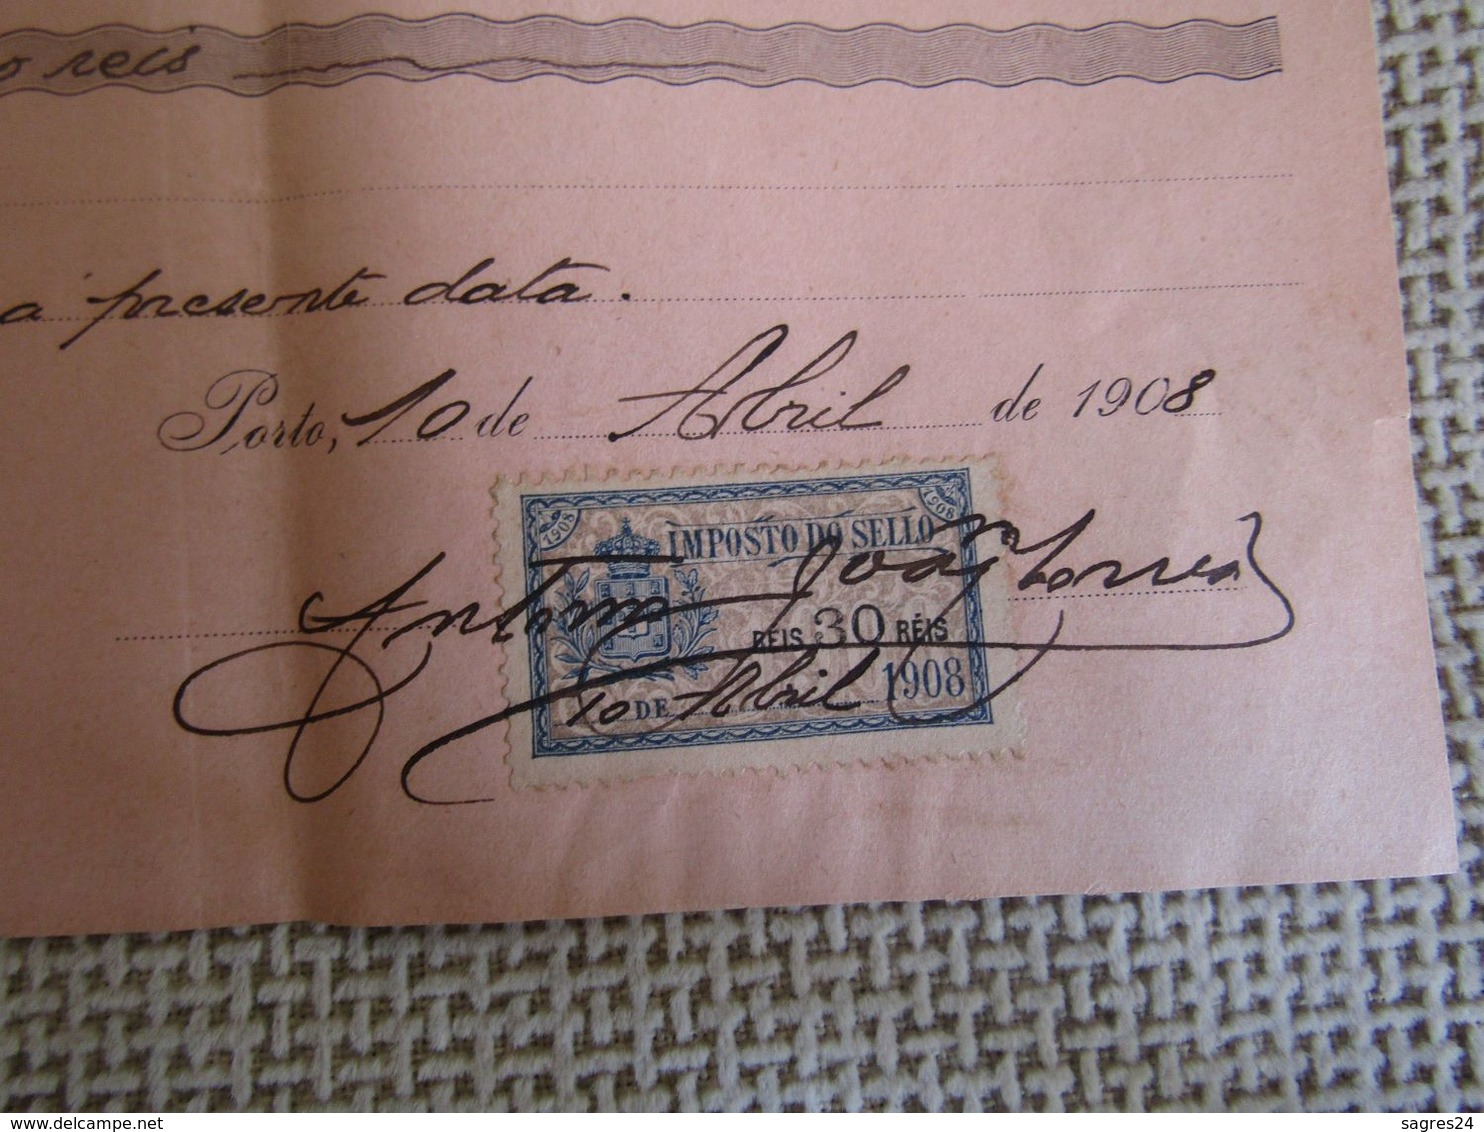 o reis
a presente data.
Porto, 10 de Abril de 1908
1908 1908
IMPOSTO DO SELLO
Antonio
RÉIS 30 RÉIS
10 DE Abril 1908
delcampe.net
sagres24